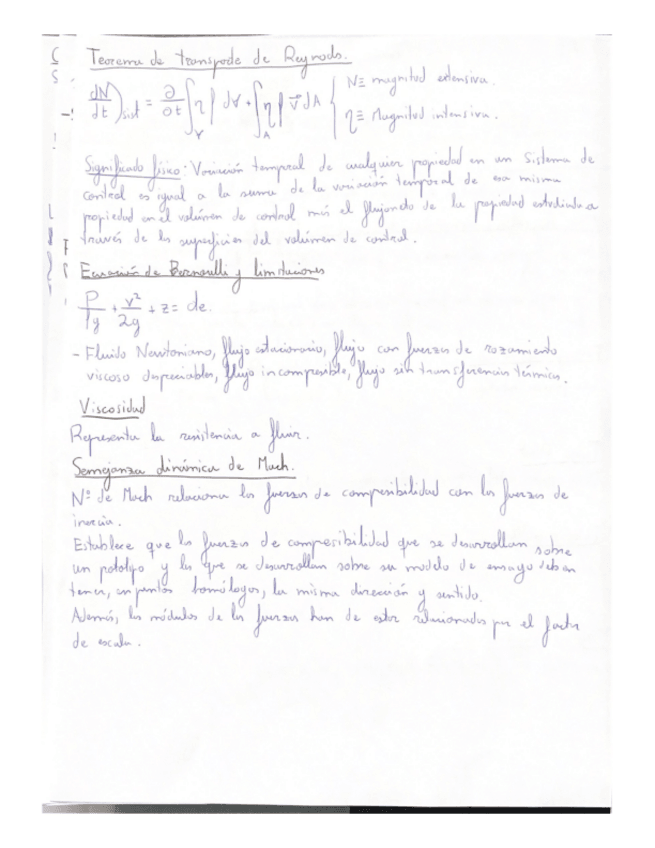 Teorema de transporte de Reynods.
dN/dt)sist = ∂/∂t ∫∀ η ρ d∀ + ∫A η ρ v⃗ dA { N ≡ magnitud extensiva.
η ≡ Magnitud intensiva.
Significado físico: Variación temporal de cualquier propiedad en un sistema de
control es igual a la suma de la variación temporal de esa misma
propiedad en el volúmen de control más el flujo neto de la propiedad estudiada a
través de las superficies del volúmen de control.
Ecuación de Bernoulli y limitaciones
P/ρg + v²/2g + z = cte.
- Fluido Newtoniano, flujo estacionario, flujo con fuerzas de rozamiento
viscoso despreciables, flujo incompresible, flujo sin transferencia térmica.
Viscosidad
Representa la resistencia a fluir.
Semejanza dinámica de Mach.
Nº de Mach relaciona las fuerzas de compresibilidad con las fuerzas de
inercia.
Establece que las fuerzas de compresibilidad que se desarrollan sobre
un prototipo y las que se desarrollan sobre su modelo de ensayo deben
tener, en puntos homólogos, la misma dirección y sentido.
Además, los módulos de las fuerzas han de estar relacionados por el factor
de escala.